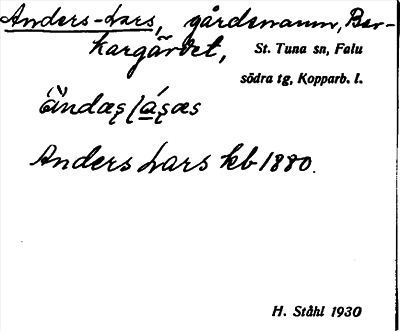 Anders-Lars, gårdsnamn, Bar-
kargärdet, St. Tuna sn, Falu
södra tg, Kopparb. l.
Anders Lars kb 1880.
H. Ståhl 1930